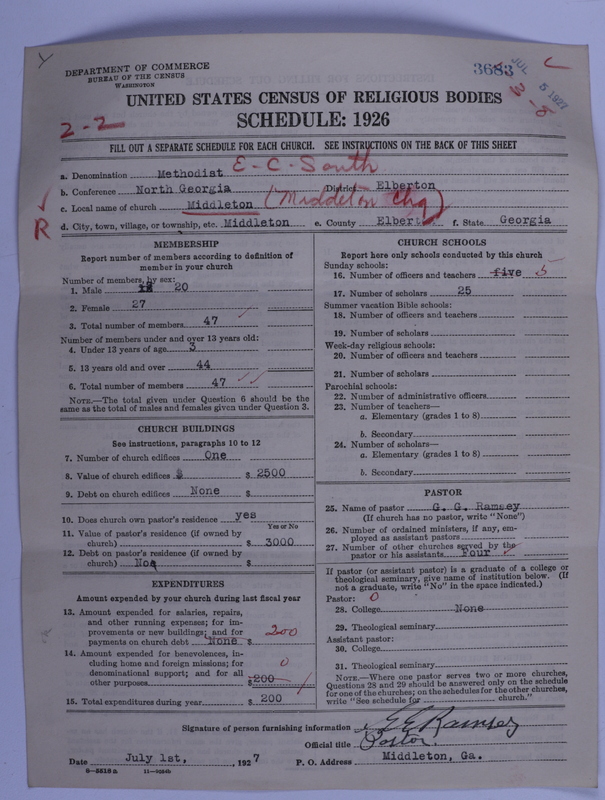 DEPARTMENT OF COMMERCE
BUREAU OF THE CENSUS
WASHINGTON
3683
JUL 5 1927
UNITED STATES CENSUS OF RELIGIOUS BODIES
SCHEDULE: 1926
2-2
FILL OUT A SEPARATE SCHEDULE FOR EACH CHURCH. SEE INSTRUCTIONS ON THE BACK OF THIS SHEET
a. Denomination Methodist E-C-South
b. Conference North Georgia District Elberton
c. Local name of church Middleton (Middleton Chg)
R
d. City, town, village, or township, etc. Middleton e. County Elbert f. State Georgia
MEMBERSHIP
Report number of members according to definition of
member in your church
Number of members, by sex:
1. Male 20
2. Female 27
3. Total number of members 47
Number of members under and over 13 years old:
4. Under 13 years of age 3
5. 13 years old and over 44
6. Total number of members 47
NOTE.—The total given under Question 6 should be the
same as the total of males and females given under Question 3.
CHURCH BUILDINGS
See instructions, paragraphs 10 to 12
7. Number of church edifices One
8. Value of church edifices $ $ 2500
9. Debt on church edifices None $
10. Does church own pastor's residence yes
Yes or No
11. Value of pastor's residence (if owned by
church) $ 3000
12. Debt on pastor's residence (if owned by
church) No $
EXPENDITURES
Amount expended by your church during last fiscal year
13. Amount expended for salaries, repairs,
and other running expenses; for im-
provements or new buildings; and for
payments on church debt None $ 200
14. Amount expended for benevolences, in-
cluding home and foreign missions; for
denominational support; and for all
other purposes $ 200 0
15. Total expenditures during year $ 200
CHURCH SCHOOLS
Report here only schools conducted by this church
Sunday schools:
16. Number of officers and teachers five 5
17. Number of scholars 25
Summer vacation Bible schools:
18. Number of officers and teachers
19. Number of scholars
Week-day religious schools:
20. Number of officers and teachers
21. Number of scholars
Parochial schools:
22. Number of administrative officers
23. Number of teachers—
a. Elementary (grades 1 to 8)
b. Secondary
24. Number of scholars—
a. Elementary (grades 1 to 8)
b. Secondary
PASTOR
25. Name of pastor G. G. Ramsey
(If church has no pastor, write "None")
26. Number of ordained ministers, if any, em-
ployed as assistant pastors
27. Number of other churches served by the
pastor or his assistants Four
If pastor (or assistant pastor) is a graduate of a college or
theological seminary, give name of institution below. (If
not a graduate, write "No" in the space indicated.)
Pastor: 0
28. College None
29. Theological seminary
Assistant pastor:
30. College
31. Theological seminary
NOTE.—Where one pastor serves two or more churches,
Questions 28 and 29 should be answered only on the schedule
for one of the churches; on the schedules for the other churches,
write "See schedule for church."
Signature of person furnishing information G G Ramsey
Official title Pastor.
Date July 1st, 1927 P. O. Address Middleton, Ga.